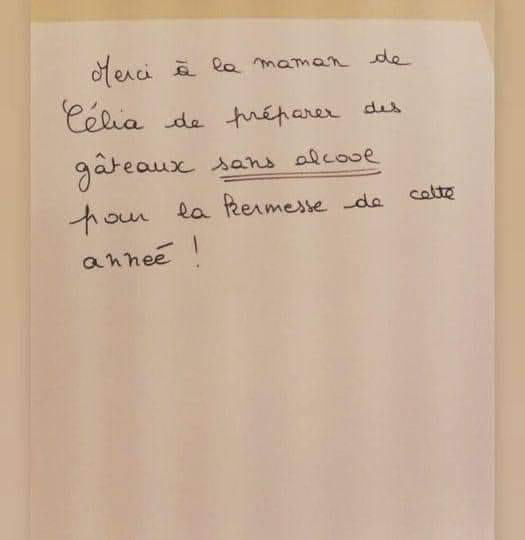 Merci à la maman de
Célia de préparer des
gâteaux sans alcool
pour la kermesse de cette
anneé !